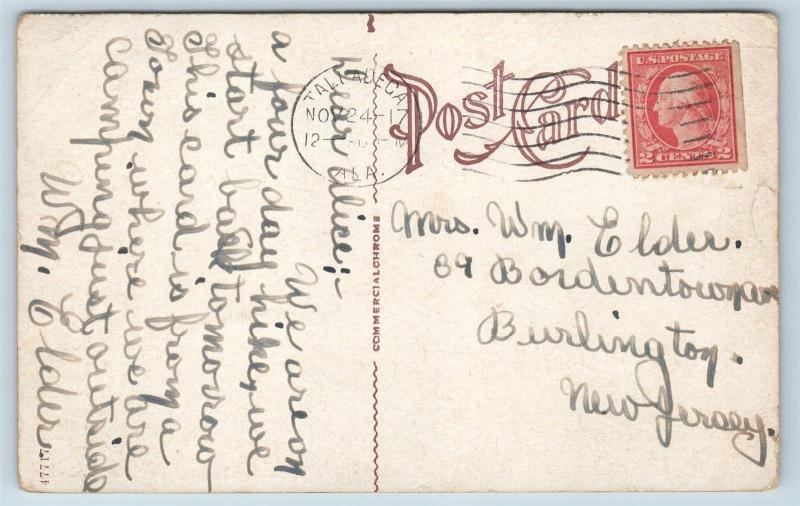 Dear Alice:-
We are on
a four day hike, we
start back tomorrow
This card is from a
town where we are
camping just outside
Wm. Elder
Post Card
TALLADEGA
NOV 24 17
12-
ALA.
U.S. POSTAGE
2 CENTS 2
Mrs. Wm. Elder.
Bordentown ave
Burlington.
New Jersey.
COMMERCIALCHROME
47717